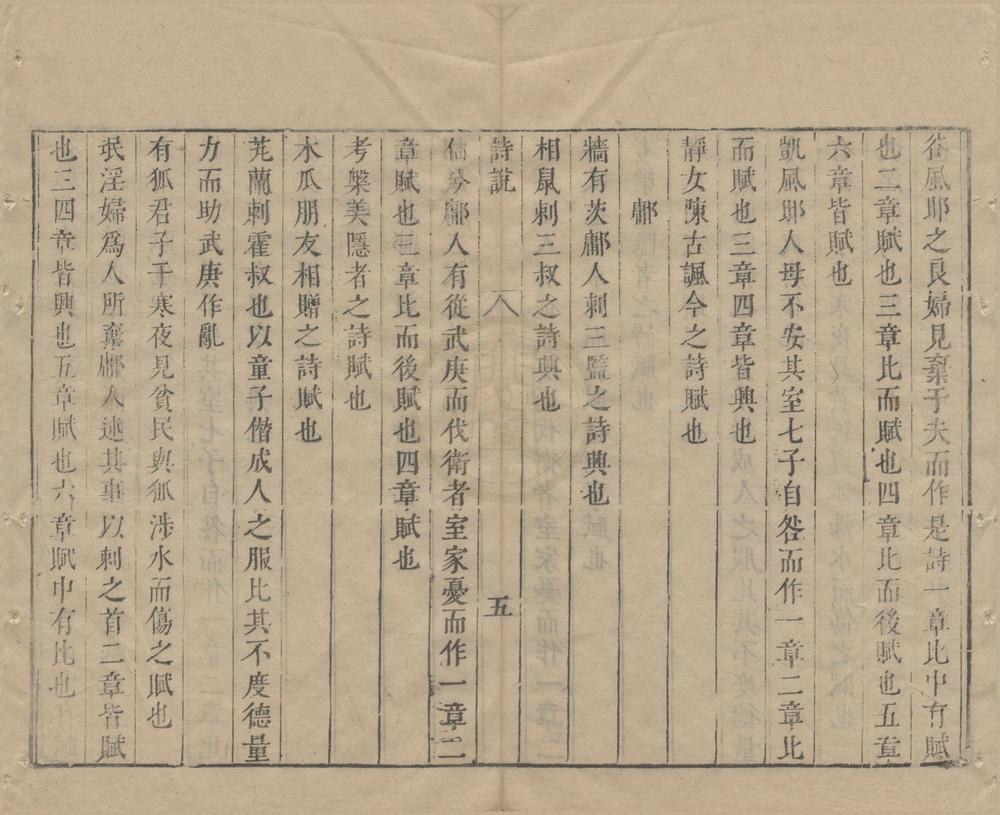 谷風邶之良婦見棄于夫而作是詩一章比中有賦
也二章賦也三章比而賦也四章比而後賦也五章
六章皆賦也
凱風邶人母不安其室七子自咎而作一章二章比
而賦也三章四章皆興也
靜女陳古諷今之詩賦也
鄘
牆有茨鄘人刺三監之詩興也
相鼠刺三叔之詩興也
詩說
五
伯兮鄘人有從武庚而伐衛者室家憂而作一章二
章賦也三章比而後賦也四章賦也
考槃美隱者之詩賦也
木瓜朋友相贈之詩賦也
芄蘭刺霍叔也以童子僭成人之服比其不度德量
力而助武庚作亂
有狐君子于寒夜見貧民與狐涉水而傷之賦也
氓淫婦爲人所棄鄘人述其事以刺之首二章皆賦
也三四章皆興也五章賦也六章賦中有比也